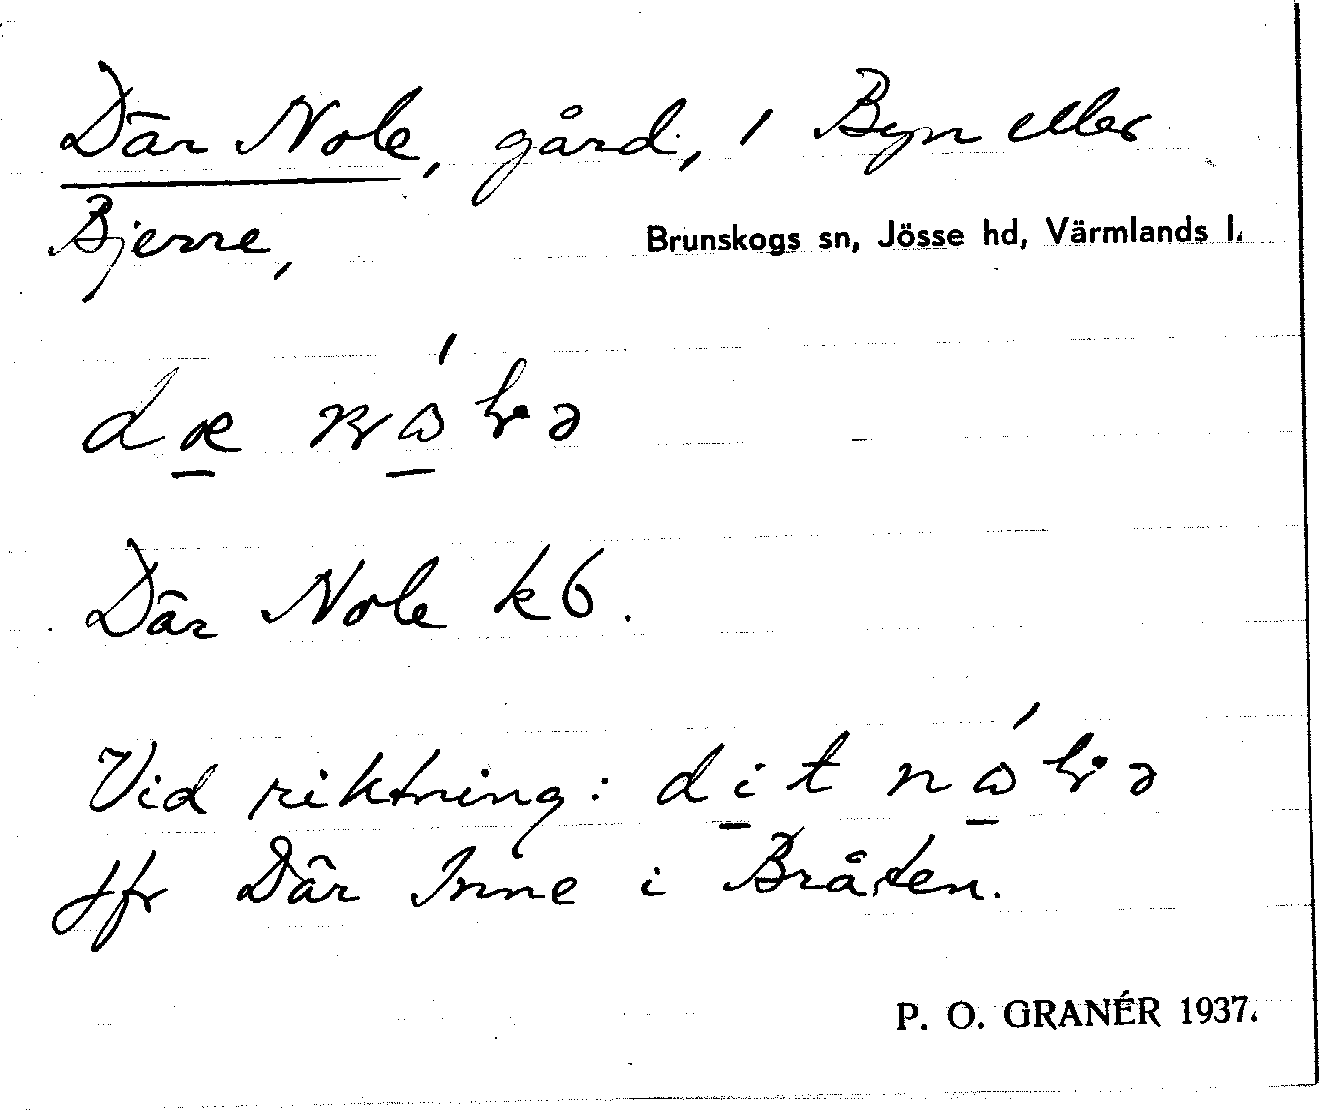 Där Nole, gård, i Byn eller
Bjerne,
Brunskogs sn, Jösse hd, Värmlands l.
Där Nole kb.
Vid riktning:
Jfr Där Inne i Bråten.
P. O. GRANÉR 1937.